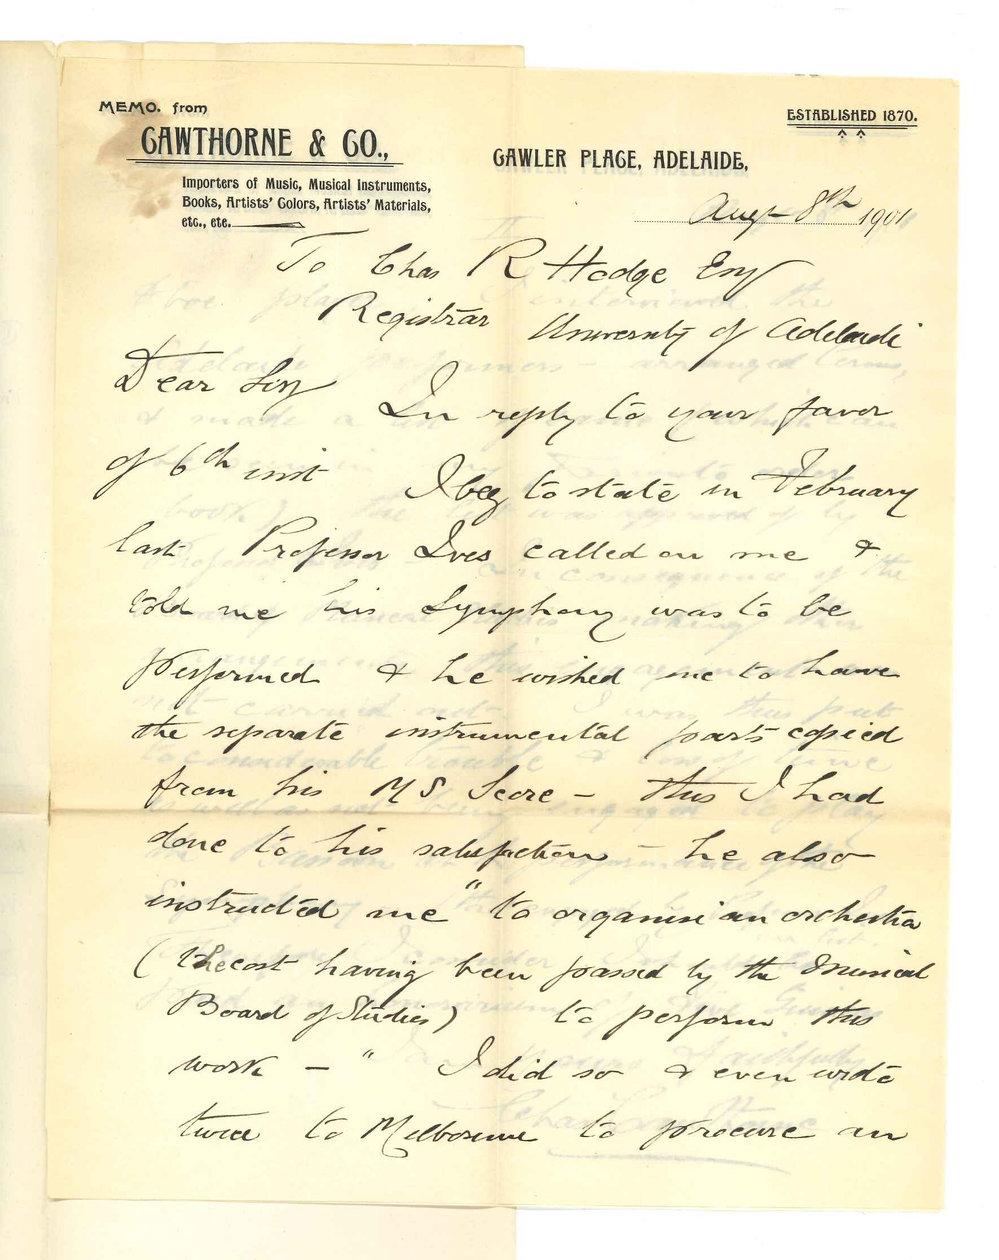 MEMO. from
CAWTHORNE & CO.,
Importers of Music, Musical Instruments,
Books, Artists' Colors, Artists' Materials,
etc., etc.
ESTABLISHED 1870.
GAWLER PLACE, ADELAIDE,
Aug 8th 1901
To Chas R Hodge Esq
Registrar University of Adelaide
Dear Sir In reply to your favor
of 6th inst I beg to state in February
last Professor Ives called on me &
told me his Symphony was to be
performed & he wished me to have
the separate instrumental parts copied
from his MS Score – this I had
done to his satisfaction – he also
instructed me "to organise an orchestra
(the cost having been passed by the Musical
Board of Studies) to perform this
work – " I did so & even wrote
twice to Melbourne to procure an